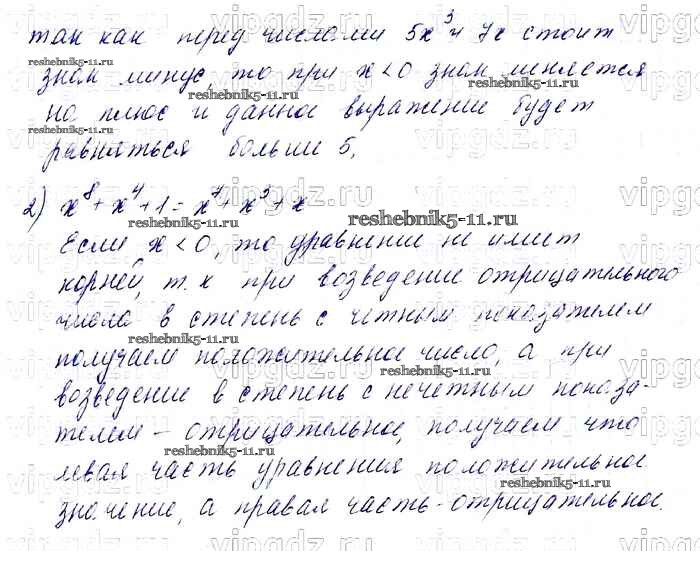 так как перед числами 5x³ и 7x стоит
знак минус, то при x<0 знак меняется
на плюс и данное выражение будет
равняться больше 5.
2) x⁸ + x⁴ + 1 = x⁷ + x³ + x
Если x < 0, то уравнение не имеет
корней, т.к при возведение отрицательного
числа в степень с четным показателем
получаем положительное число, а при
возведение в степень с нечетным показа-
телем - отрицательное, получаем что
левая часть уравнения положительное
значение, а правая часть - отрицательное.
reshebnik5-11.ru
vipgdz.ru